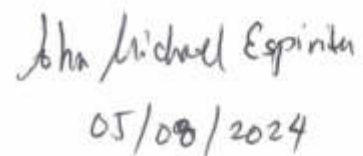 John Michael Espiritu
05/08/2024